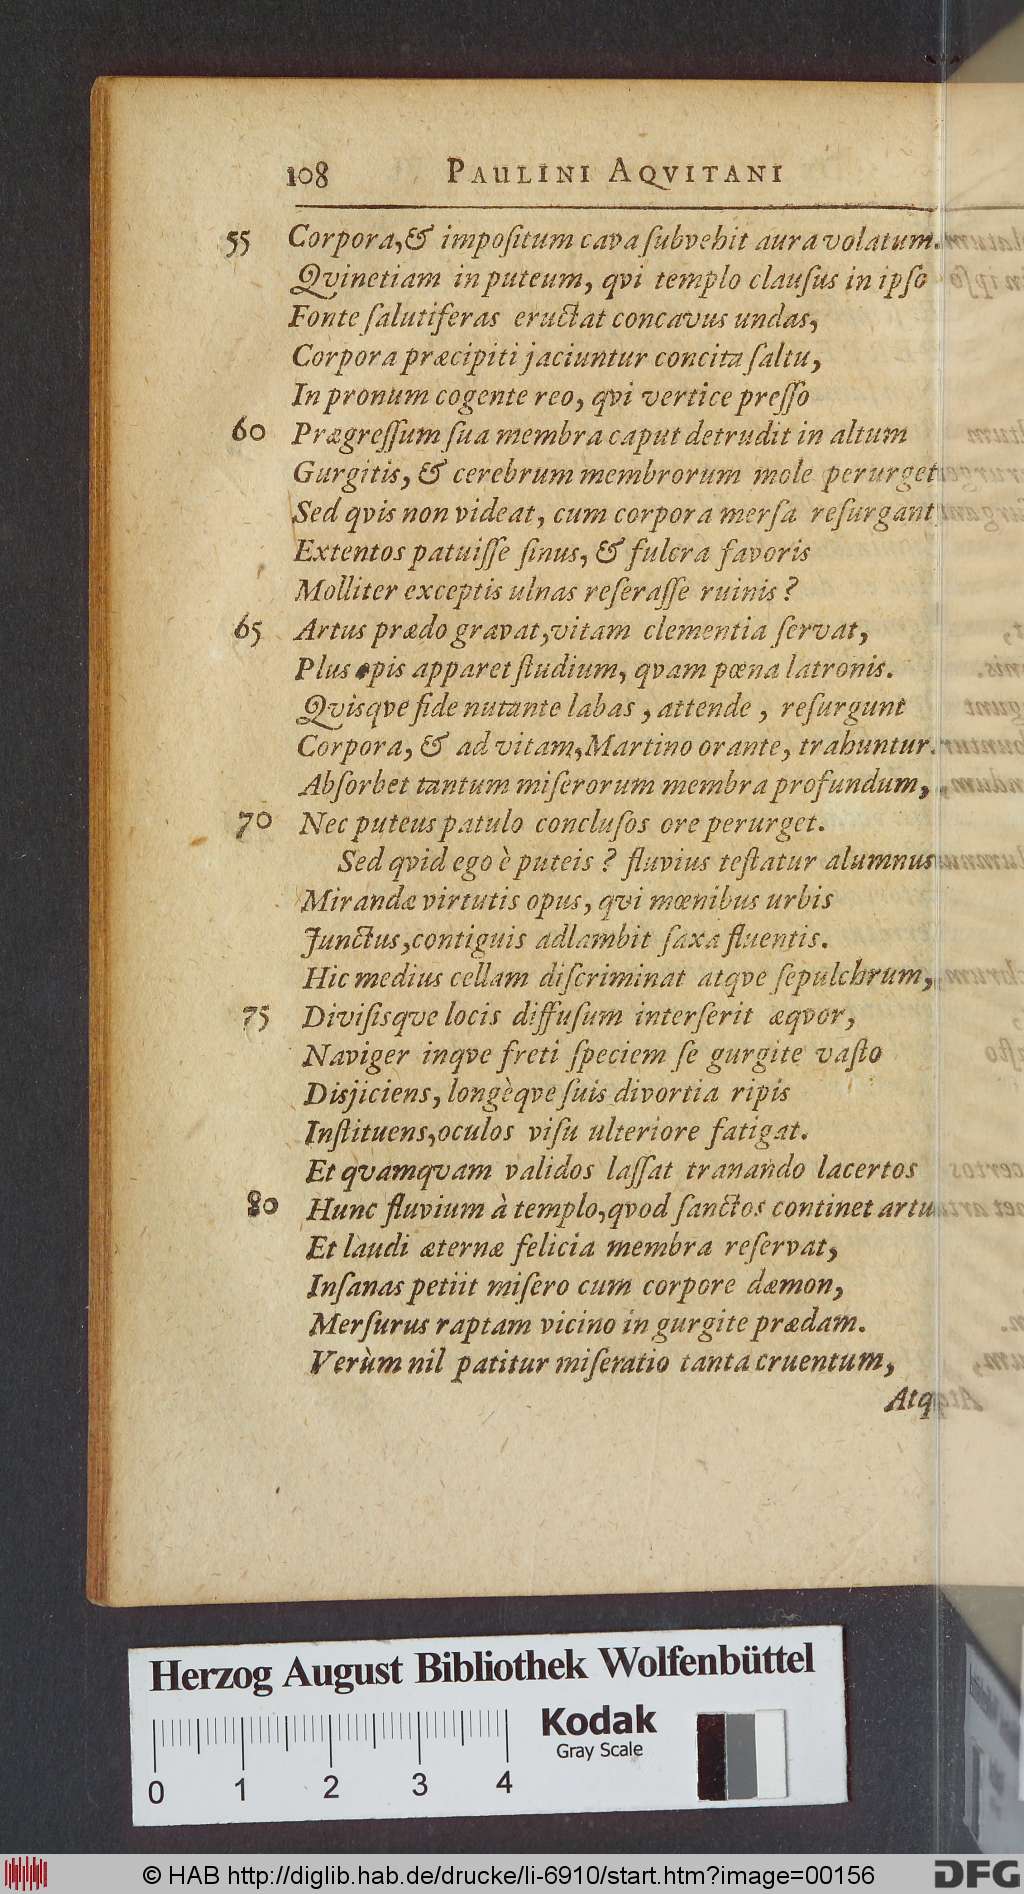 108 PAULINI AQVITANI
55 Corpora, & impositum cava subvehit aura volatum.
Qvinetiam in puteum, qvi templo clausus in ipso
Fonte salutiferas eructat concavus undas,
Corpora præcipiti jaciuntur concita saltu,
In pronum cogente reo, qvi vertice presso
60 Prægressum sua membra caput detrudit in altum
Gurgitis, & cerebrum membrorum mole perurget
Sed qvis non videat, cum corpora mersa resurgant
Extentos patuisse sinus, & fulcra favoris
Molliter exceptis ulnas reserasse ruinis?
65 Artus prædo gravat, vitam clementia servat,
Plus opis apparet studium, qvam pœna latronis.
Qvisqve fide nutante labas, attende, resurgunt
Corpora, & ad vitam, Martino orante, trahuntur.
Absorbet tantum miserorum membra profundum,
70 Nec puteus patulo conclusos ore perurget.
Sed qvid ego è puteis? fluvius testatur alumnus
Mirandæ virtutis opus, qvi mœnibus urbis
Junctus, contiguis adlambit saxa fluentis.
Hic medius cellam discriminat atqve sepulchrum,
75 Divisisqve locis diffusum interserit æqvor,
Naviger inqve freti speciem se gurgite vasto
Disjiciens, longèqve suis divortia ripis
Instituens, oculos visu ulteriore fatigat.
Et qvamqvam validos lassat tranando lacertos
80 Hunc fluvium à templo, qvod sanctos continet artu
Et laudi æternæ felicia membra reservat,
Insanas petiit misero cum corpore dæmon,
Mersurus raptam vicino in gurgite prædam.
Verùm nil patitur miseratio tanta cruentum,
Atq
Herzog August Bibliothek Wolfenbüttel
Kodak
Gray Scale
0 1 2 3 4
© HAB http://diglib.hab.de/drucke/li-6910/start.htm?image=00156
DFG